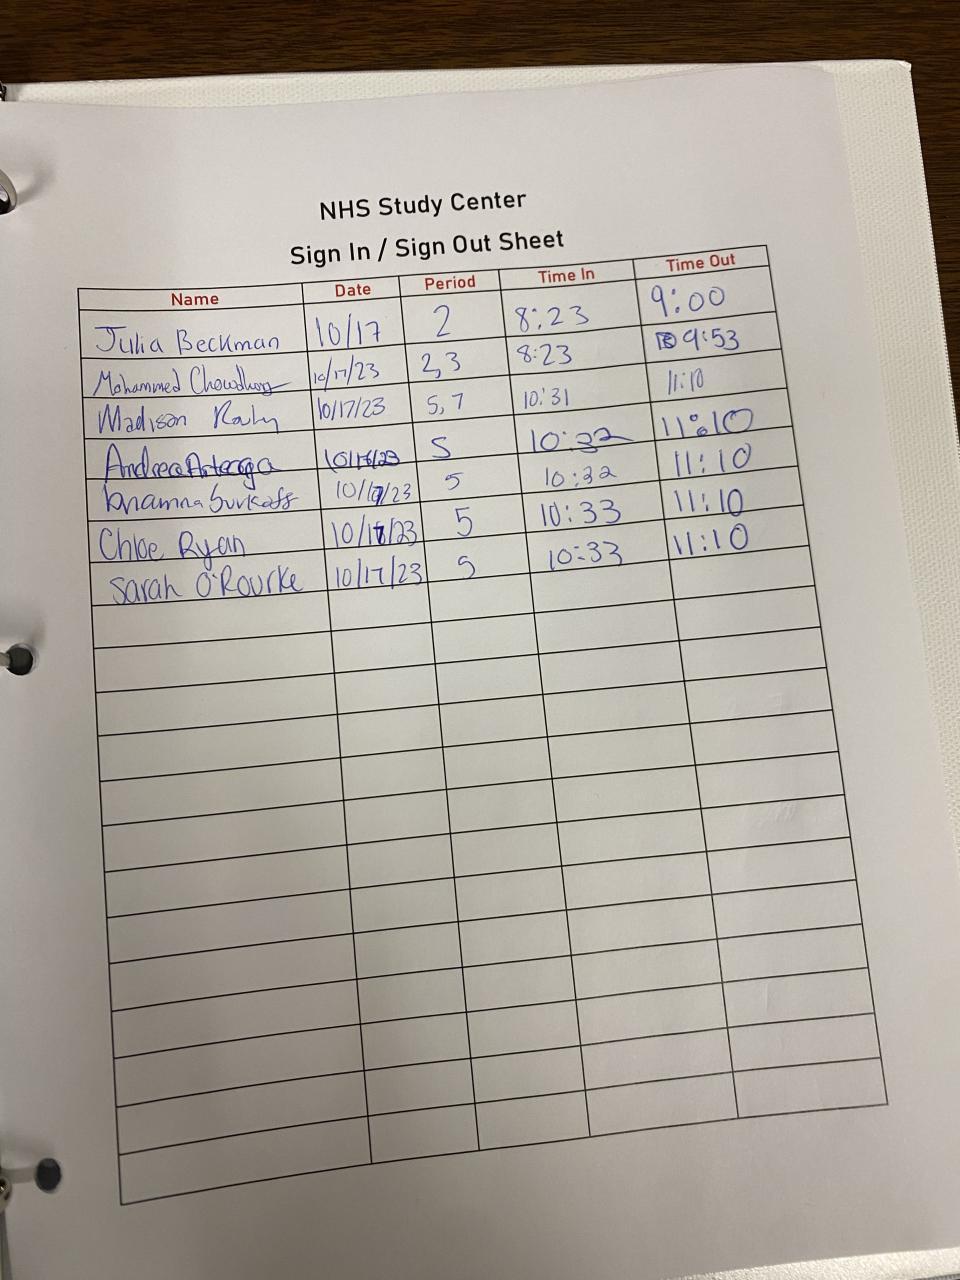 NHS Study Center
Sign In / Sign Out Sheet
Name Date Period Time In Time Out
Julia Beckman 10/17 2 8:23 9:00
Mohammed Chowdhury 10/17/23 2,3 8:23 9:53
Madison 10/17/23 5,7 10:31 11:10
Andrea Arteaga 5 10:32 11:10
10/17/23 5 10:32 11:10
Chloe Ryan 10/17/23 5 10:33 11:10
Sarah O'Rourke 10/17/23 5 10:33 11:10